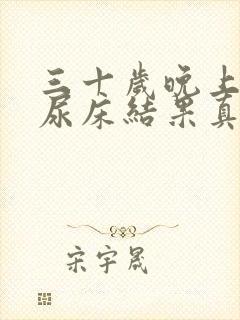 三十歲晚上
尿床結果真
宋宇晟